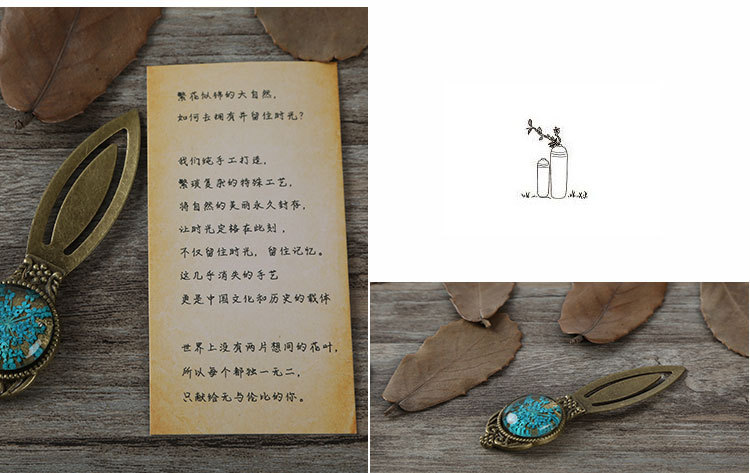 繁花似锦的大自然，
如何去拥有并留住时光？
我们纯手工打造，
繁琐复杂的特殊工艺，
将自然的美丽永久封存，
让时光定格在此刻，
不仅留住时光，留住记忆。
这几乎消失的手艺
更是中国文化和历史的载体
世界上没有两片想同的花叶，
所以每个都独一无二，
只献给无与伦比的你。